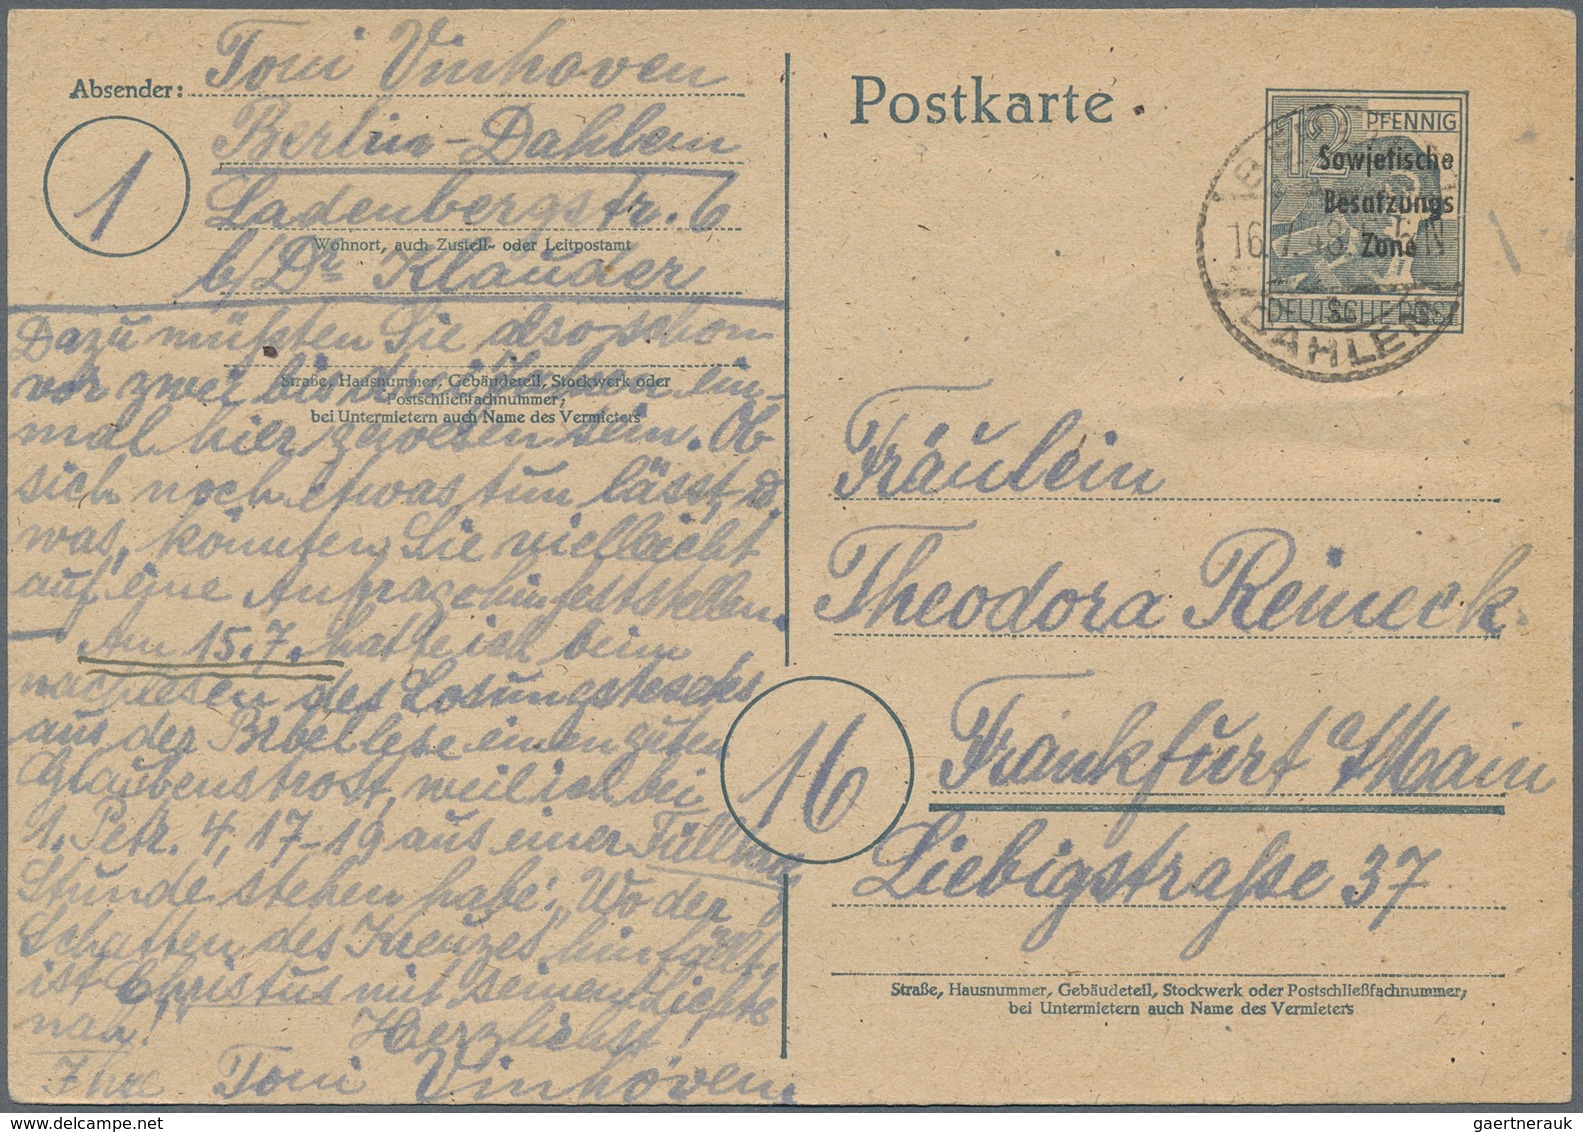 Absender: Toni Vinhoven
Berlin-Dahlem
1
Ladenbergstr. 6
Wohnort, auch Zustell- oder Leitpostamt
b/Dr Klauder
Straße, Hausnummer, Gebäudeteil, Stockwerk oder
Postschließfachnummer;
bei Untermietern auch Name des Vermieters
Dazu müßten Sie also schon
vor zwei bis drei ein-
mal hier gewesen sein. Ob
sich noch etwas tun lässt, u.
was, könnten Sie vielleicht
auf eine Anfrage hin feststellen.
— Am 15.7. hatte ich beim
nachlesen des Losungstextes
aus der Bibellese einen guten
Glaubenstrost, weil ich bei
1. Petr. 4, 17-19 aus einer
Stunde stehen habe: „Wo der
Schatten des Kreuzes hinfällt,
ist Christus mit seinem Lichte
nah!
Herzlichst
Ihre Toni Vinhoven
Postkarte
12 PFENNIG
Sowjetische
Besatzungs
Zone
DEUTSCHE POST
16.7.48
DAHLEM
Fräulein
Theodora Reineck.
16
Frankfurt/Main
Liebigstraße 37
Straße, Hausnummer, Gebäudeteil, Stockwerk oder Postschließfachnummer;
bei Untermietern auch Name des Vermieters
gaertnerauk @ delcampe.net